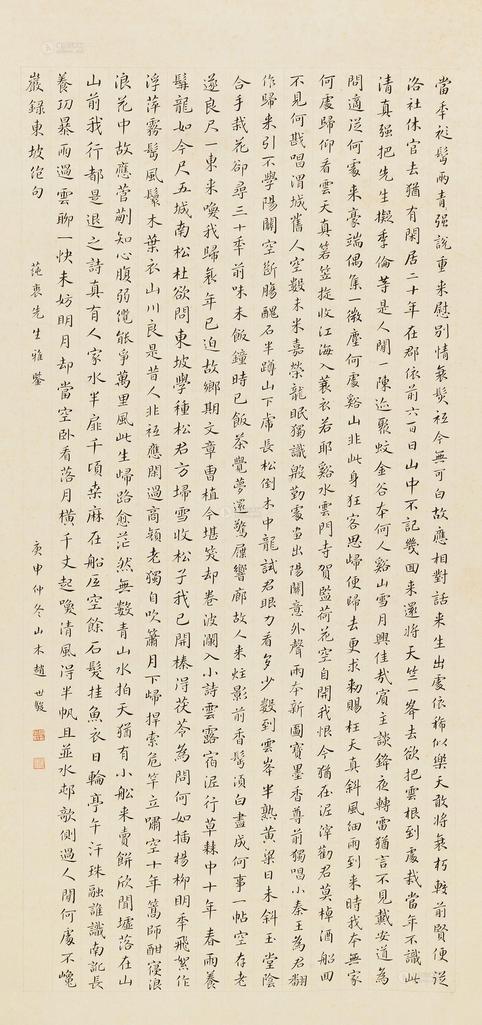 當秊衫鬢兩青強說重來慰別情衰髮祗今無可白故應相對話來生出處依稀似樂天敢將衰朽較前賢便從
洛社休官去猶有閑居二十年在郡依前六百日山中不記幾回來還將天竺一峯去欲把雲根到處栽當年不識此
清真強把先生擬季倫等是人間一陳迹聚蚊金谷本何人谿山雪月興佳哉賓主談鋒夜轉雷猶言不見戴安道為
問適從何處來豪端偶集一微塵何處谿山非此身狂客思歸便歸去更求勅賜枉天真斜風細雨到來時我本無家
何處歸仰看雲天真箬笠旋收江海入蓑衣若耶谿水雲門寺賀監荷花空自開我恨今猶在泥滓勸君莫棹酒船回
不見何戡唱渭城舊人空數米嘉榮龍眠獨識殷勤處畫出陽關意外聲兩本新圖寶墨香尊前獨唱小秦王為君翻
作歸來引不學陽關空斷腸醜石半蹲山下虎長松倒木中龍試君眼力看多少數到雲峯半熟黃粱日未斜玉堂陰
合手栽花卻尋三十秊前味未飯鐘時已飯茶覺夢還驚屧響廊故人來炷影前香鬢須白盡成何事一帖空存老
遂良尺一東來喚我歸衰年已迫故鄉期文章曹植今堪笑卻卷波瀾入小詩雲露宿泥行草棘中十年春雨養
髯龍如今尺五城南松杜欲問東坡學種松君方埽雪收松子我已開榛得茯苓為問何如插楊柳明秊飛絮作
浮萍霧鬢風鬟木葉衣山川良是昔人非祗應閑過商顏老獨自吹簫月下歸捍索危竿立嘯空十年篙師酣寢浪
浪花中故應菅蒯知心腹弱纜能爭萬里風此生歸路愈茫然無數青山水拍天猶有小船來賣餅欣聞墟落在山
山前我行都是退之詩真有人家水半扉千頃桑麻在船底空餘石髮挂魚衣日輪亭午汗珠融誰識南訛長
養功暴雨過雲聊一快未妨明月卻當空卧看落月橫千丈起喚清風得半帆且並水邨欹側過人間何處不巉
巖錄東坡絕句
蒓衷先生雅鑒
庚申仲冬山木趙世駿